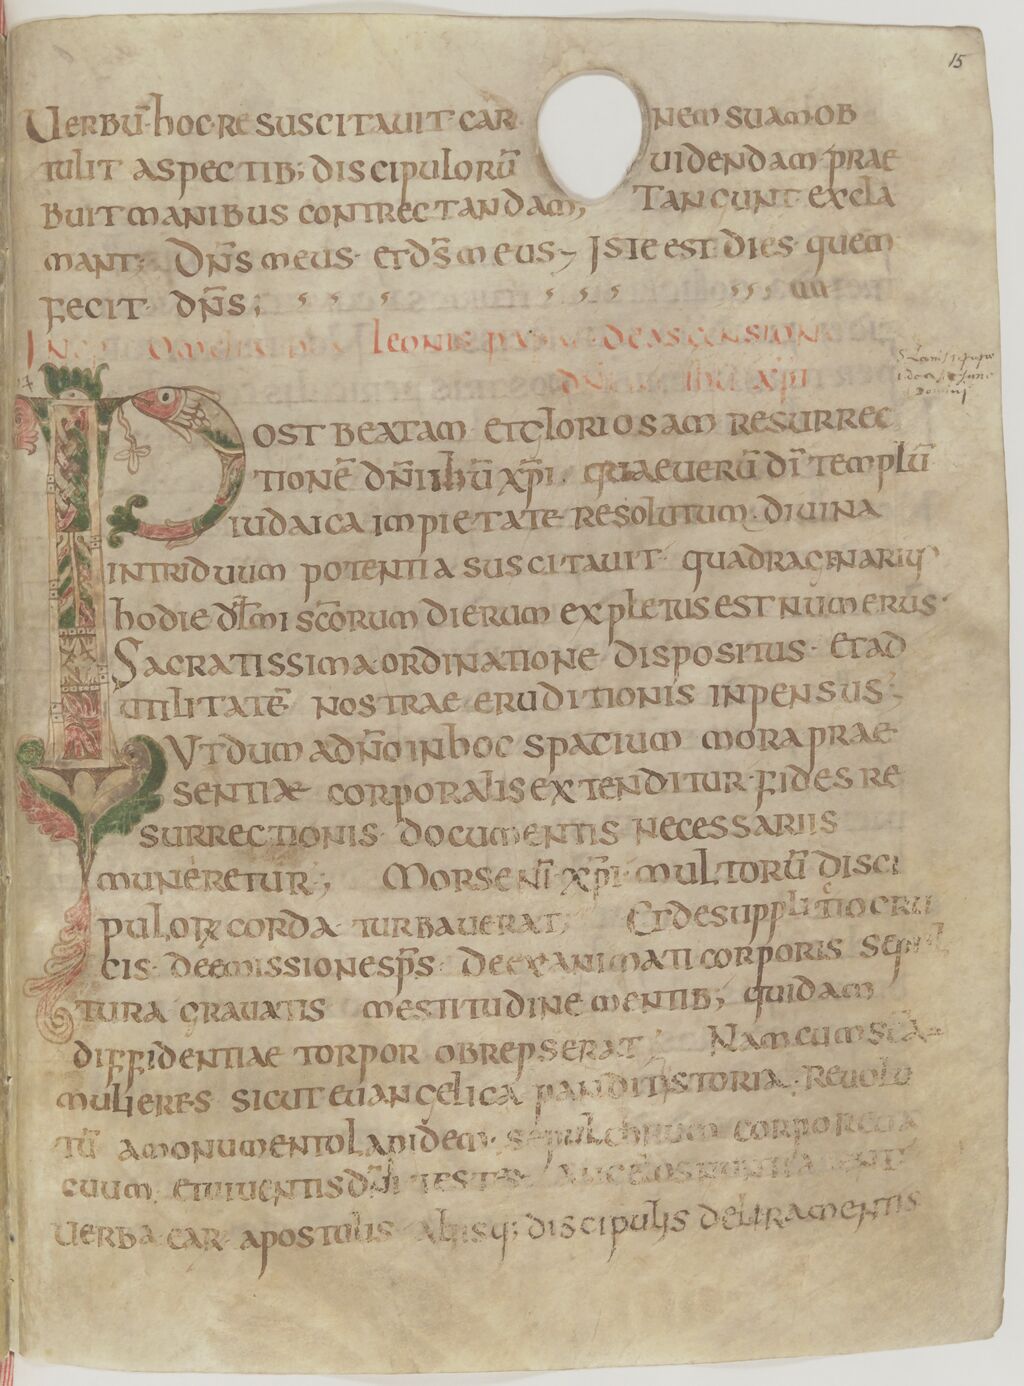 15
Uerbū· hoc· resuscitauit car nem suam ob
tulit aspectib; discipulorū uidendam prae
buit manibus contrectandam; Tan cunt excla
mant; Dn̄s meus· et ds̄ meus· Iste est dies· quem
fecit· dn̄s;
Leonis papae de ascensione
dn̄i ihu xp̄i
Post beatam et gloriosam resurrec
tionē dn̄i ihū xp̄i· quae uerū dī templū
iudaica impietate resolutum· diuina
in triduum potentia suscitauit· quadragenarius
hodie dlm̄i sc̄orum dierum expletus est numerus·
Sacratissima ordinatione dispositus· et ad
utilitatē nostrae eruditionis inpensus;
Ut dum a dn̄o in hoc spacium mora prae
sentiæ corporalis extenditur· fides re
surrectionis· documentis necessariis
muneretur; Mors eni xp̄i multorū disci
pulorꝝ corda turbauerat; Et de supplitio cru
cis· de emissione sp̄s· de exanimati corporis sepul
tura grauatis mestitudine mentib; quidam
diffidentiae torpor obrepserat; Nam cum scā
mulieres sicut euangelica pandit istoria· Reuolu
tū a monumento lapidem· sepulchrum corpore ua
cuum· et uiuentis dn̄i testes angelos nuntiarent
uerba ear apostulis aliisq; discipulis deliramentis